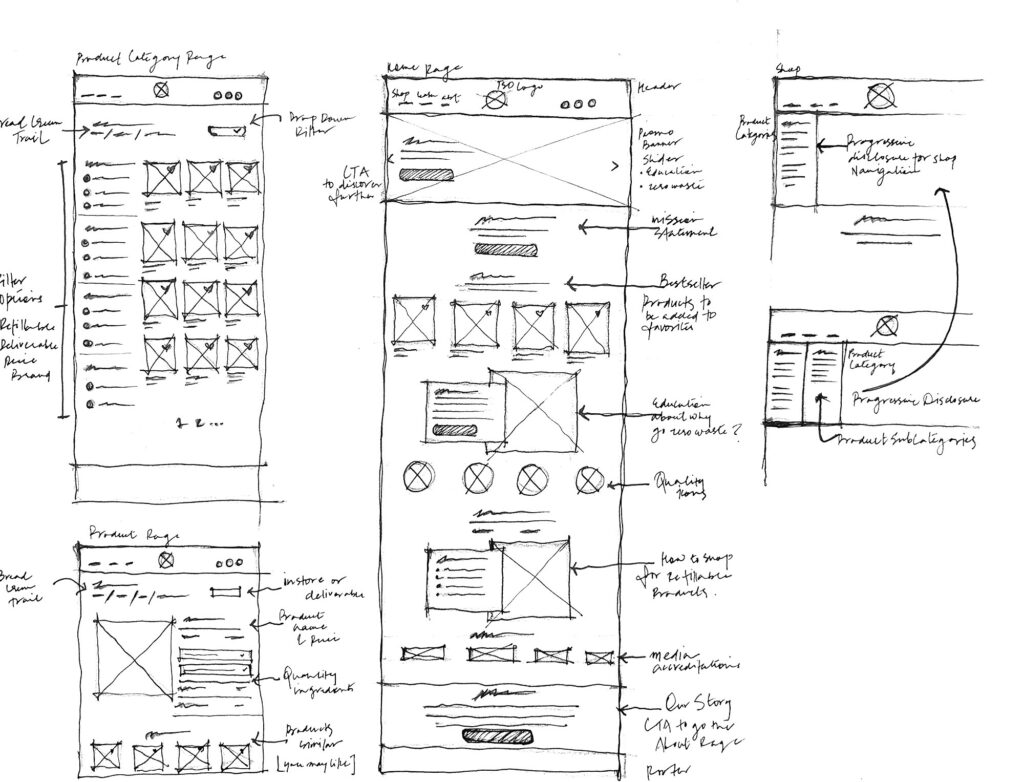 Product Category Page
Bread Crum
Trail
Drop Down
Filter
Filter
Options
Refillable
Deliverable
Price
Brand
1 2 ...
Product Page
Bread
Crum
Trail
instore or
deliverable
Product
name
& Price
Quantity
ingredients
Products
similar
[you may like]
Home Page
Shop learn abt
TSO Logo
Header
CTA
to discover
further
Promo
Banner
Slider
• Education
• zero waste
mission
Statement
Bestseller
Products to
be added to
favorites
Education
about why
go zero waste?
Quality
Icons
How to shop
for refillable
Products.
media
accreditations
Our Story
CTA to go the
About Page
Footer
Shop
Product
Categories
Progressive
disclosure for shop
Navigation
Product
Category
Progressive Disclosure
Product SubCategories